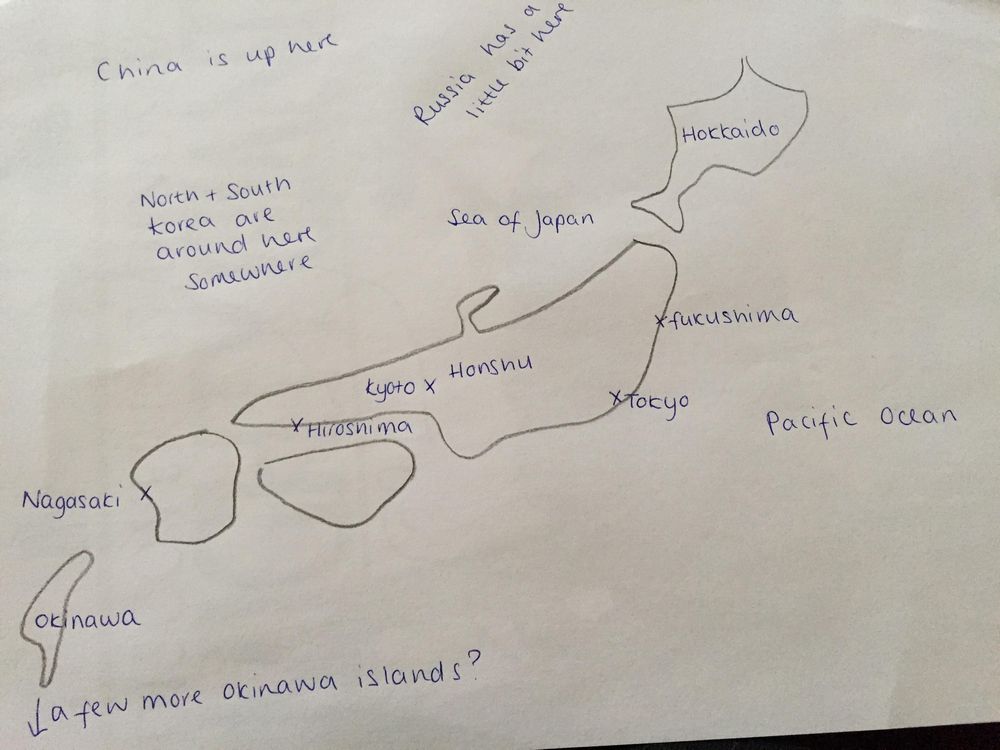 China is up here
Russia has a
little bit here
Hokkaido
North + South
Korea are
around here
somewhere
Sea of Japan
fukushima
Honshu
Kyoto x
x Tokyo
Pacific Ocean
x Hiroshima
Nagasaki x
Okinawa
↓ a few more okinawa islands?